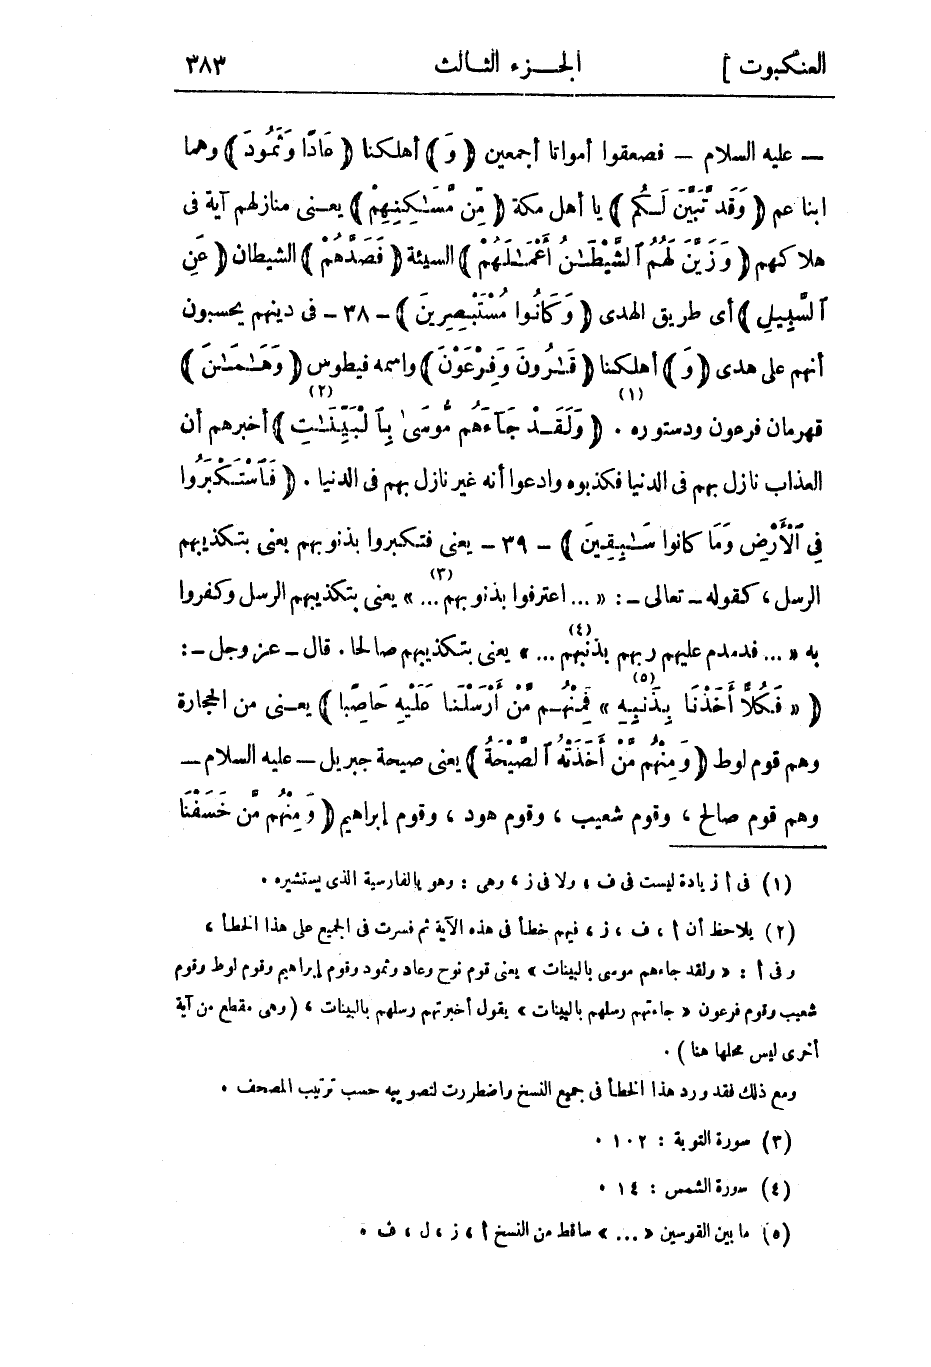 العنكبوت ] الجزء الثالث ٣٨٣
— عليه السلام — فصعقوا أمواتا أجمعين ( وَ ) أهلكنا ( عَادًا وَثَمُودَ ) وهما
ابنا عم ( وَقَد تَّبَيَّنَ لَكُم ) يا أهل مكة ( مِّن مَّسَـٰكِنِهِمْ ) يعنى منازلهم آية فى
هلاكهم ( وَزَيَّنَ لَهُمُ ٱلشَّيْطَـٰنُ أَعْمَـٰلَهُمْ ) السيئة ( فَصَدَّهُمْ ) الشيطان ( عَنِ
ٱلسَّبِيلِ ) أى طريق الهدى ( وَكَانُوا مُسْتَبْصِرِينَ ) - ٣٨ - فى دينهم يحسبون
أنهم على هدى ( وَ ) أهلكنا ( قَـٰرُونَ وَفِرْعَوْنَ ) واسمه فيطوس ( وَهَـٰمَـٰنَ )
قهرمان فرعون ودستوره (١) . ( وَلَقَدْ جَآءَهُم مُّوسَىٰ بِٱلْبَيِّنَـٰتِ ) (٢) أخبرهم أن
العذاب نازل بهم فى الدنيا فكذبوه وادعوا أنه غير نازل بهم فى الدنيا . ( فَٱسْتَكْبَرُوا
فِى ٱلْأَرْضِ وَمَا كَانُوا سَـٰبِقِينَ ) - ٣٩ - يعنى فتكبروا بذنوبهم يعنى بتكذيبهم
الرسل ، كقوله - تعالى - : « ... اعترفوا بذنوبهم ... » (٣) يعنى بتكذيبهم الرسل وكفروا
به « ... فدمدم عليهم ربهم بذنبهم ... » (٤) يعنى بتكذيبهم صالحا . قال - عز وجل - :
( « فَكُلًّا أَخَذْنَا بِذَنبِهِ » (٥) فَمِنْهُم مَّنْ أَرْسَلْنَا عَلَيْهِ حَاصِبًا ) يعنى من الحجارة
وهم قوم لوط ( وَمِنْهُم مَّنْ أَخَذَتْهُ ٱلصَّيْحَةُ ) يعنى صيحة جبريل - عليه السلام -
وهم قوم صالح ، وقوم شعيب ، وقوم هود ، وقوم إبراهيم ( وَمِنْهُم مَّنْ خَسَفْنَا
(١) فى أ زيادة ليست فى ف ، ولا فى ز ، وهى : وهو بالفارسية الذى يستشيره .
(٢) يلاحظ أن أ ، ف ، ز ، فيهم خطأ فى هذه الآية ثم فسرت فى الجميع على هذا الخطأ ،
وفى أ : « ولقد جاءهم موسى بالبينات » يعنى قوم نوح وعاد وثمود وقوم إبراهيم وقوم لوط وقوم
شعيب وقوم فرعون « جاءتهم رسلهم بالبينات » يقول أخبرتهم رسلهم بالبينات ، ( وهى مقطع من آية
أخرى ليس محلها هنا ) .
ومع ذلك فقد ورد هذا الخطأ فى جميع النسخ واضطررت لتصويبه حسب ترتيب المصحف .
(٣) سورة التوبة : ١٠٢ .
(٤) سورة الشمس : ١٤ .
(٥) ما بين القوسين « ... » ساقط من النسخ أ ، ز ، ل ، ف .